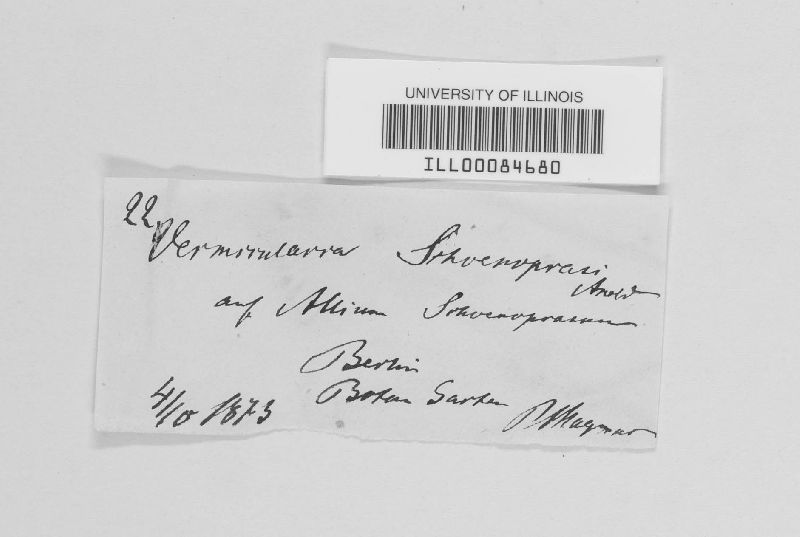 UNIVERSITY OF ILLINOIS
ILL00084680
22
Vermicularia Schoenoprasi
auf Allium Schoenoprasum
Berlin
Botan Garten
4/10 1873 P Magnus